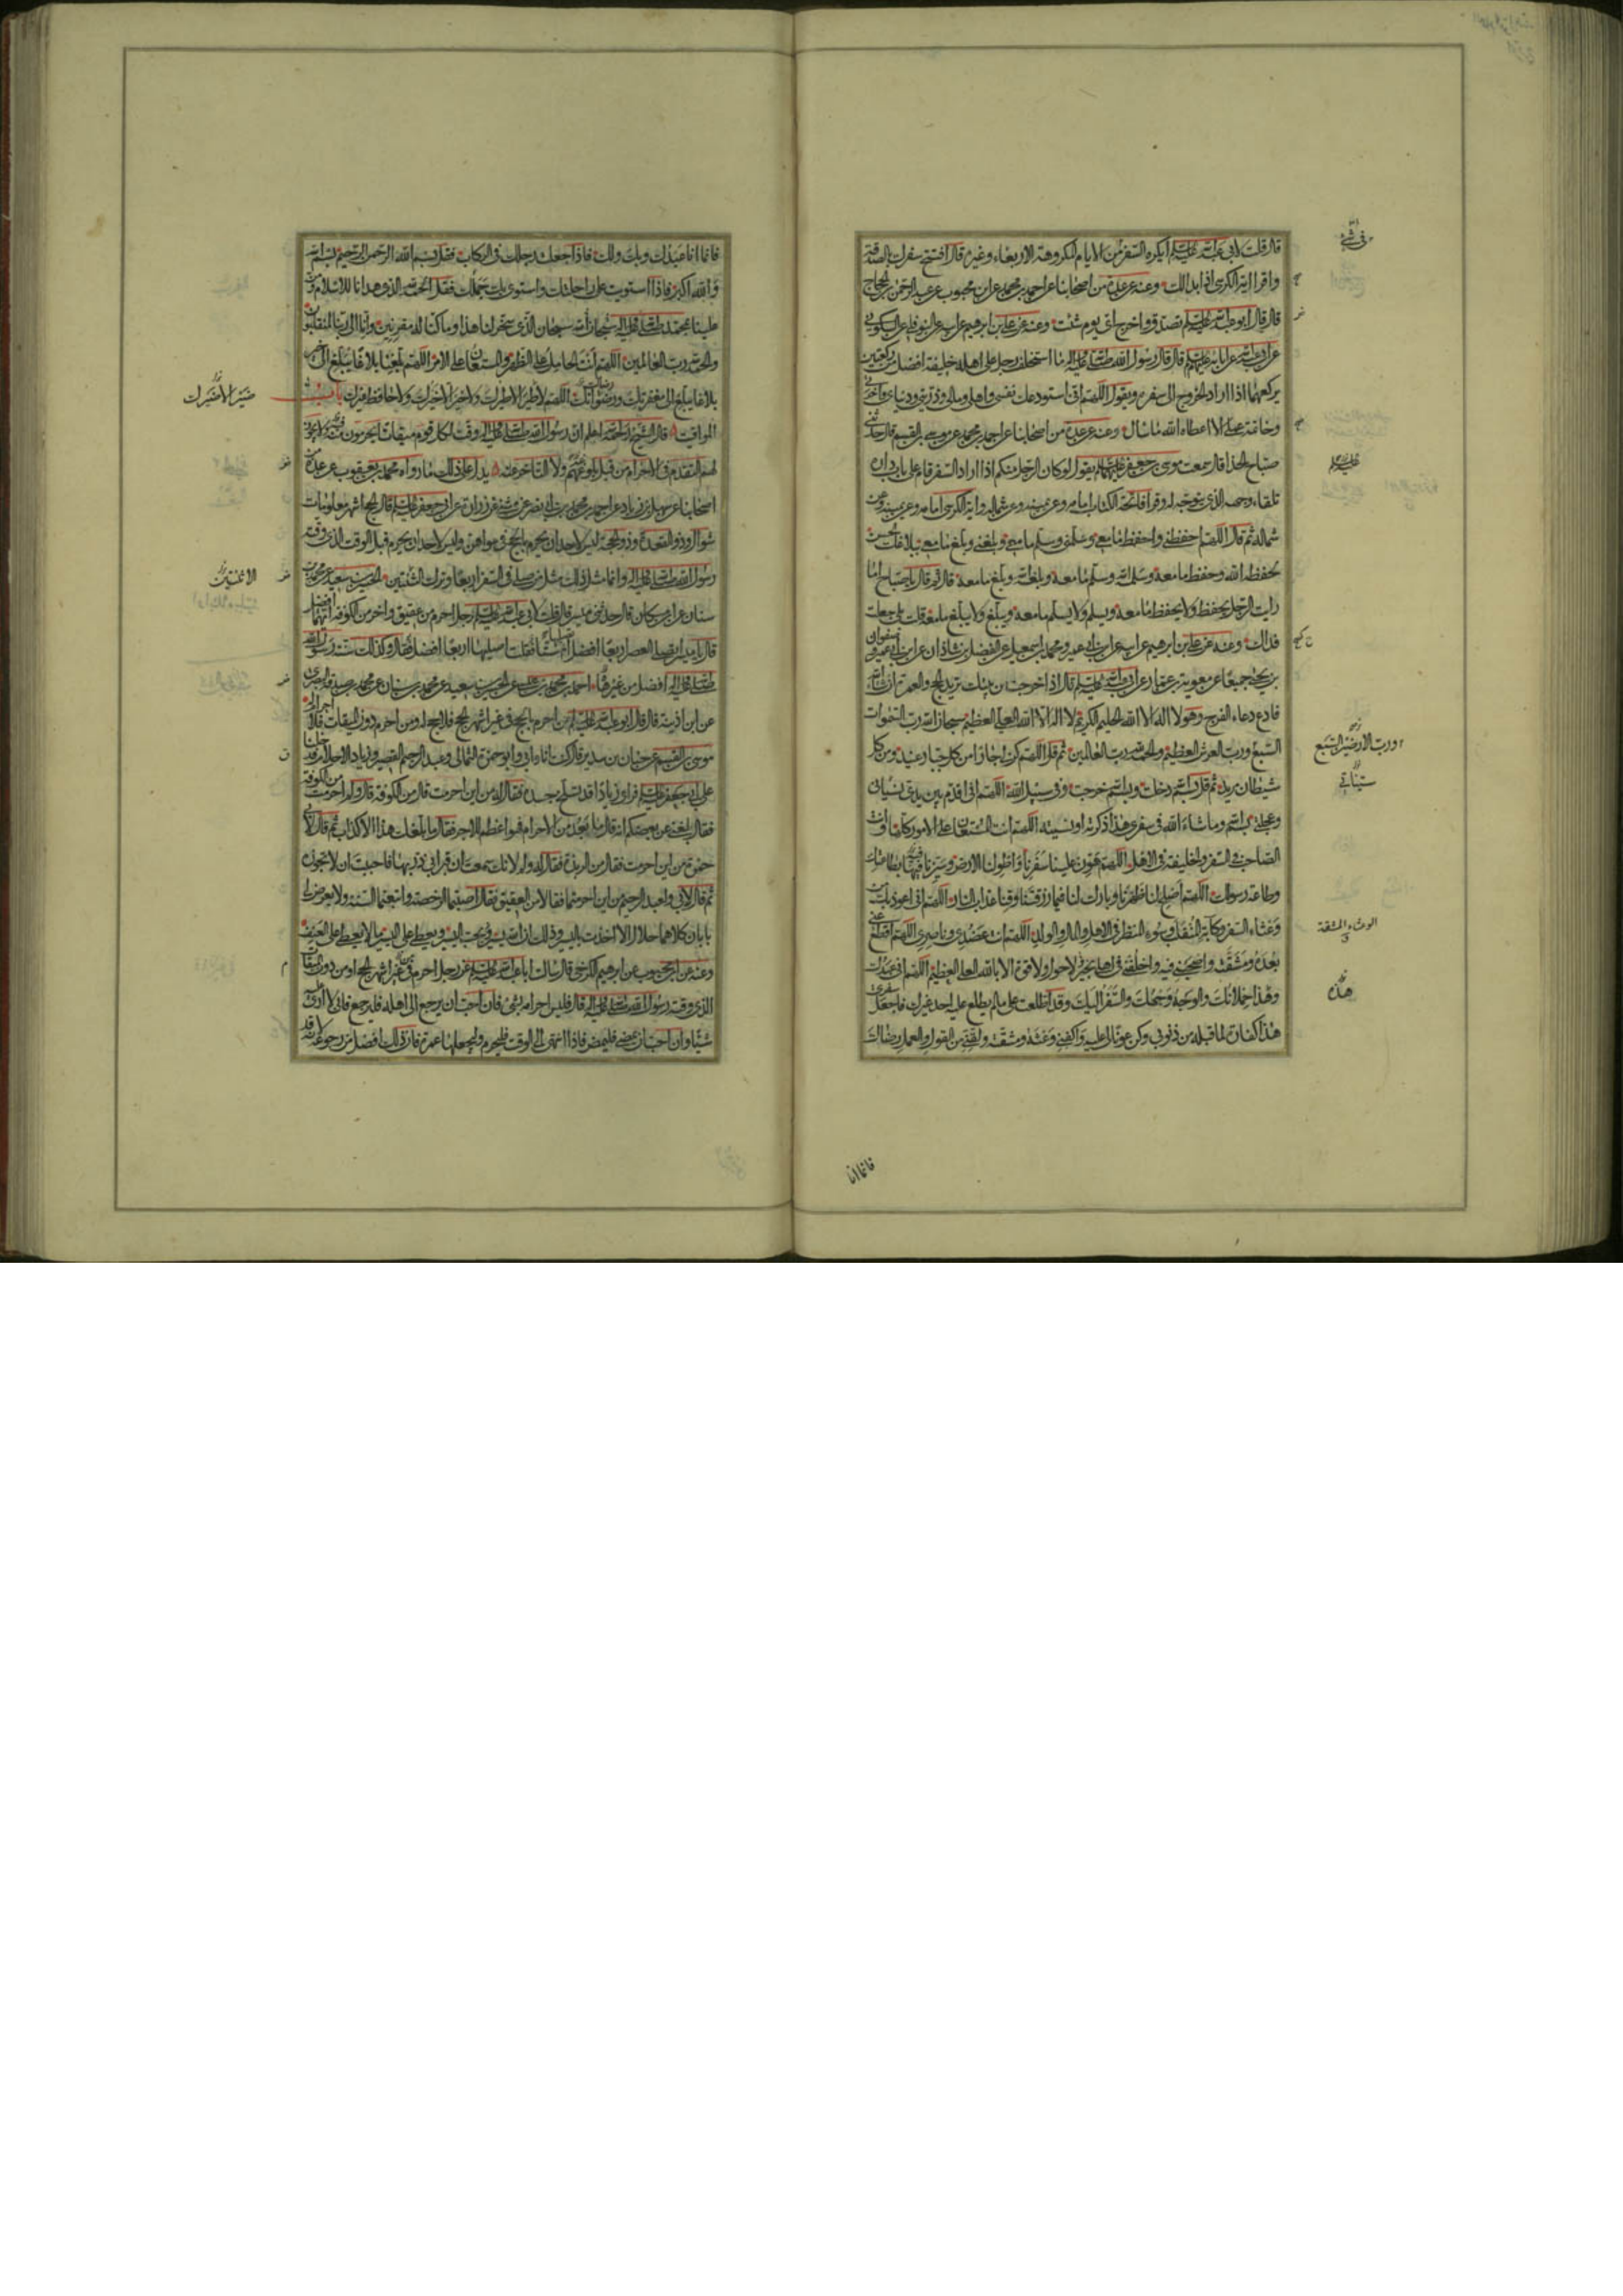 قال قلت لابي عبد الله عليه السلم ايكره السفر من الايام المكروهة الاربعاء وغيره قال افتتح سفرك بالصدقة
واقرا اية الكرسي اذا بدا لك وعنه عن عدة من اصحابنا عن احمد بن محمد عن ابن محبوب عن عبد الرحمن بن الحجاج
قال قال ابو عبد الله عليه السلم تصدق واخرج اي يوم شئت وعنه عن علي بن ابرهيم عن ابيه عن النوفلي عن السكوني
عن ابي عبد الله عن ابائه عليهم السلم قال قال رسول الله صلى الله عليه واله ما استخلف رجل على اهله خليفة افضل من ركعتين
يركعهما اذا اراد الخروج الى سفره ويقول اللهم اني استودعك نفسي واهلي ومالي وذريتي ودنياي واخرتي
وخاتمة عملي الا اعطاه الله ما سال وعنه عن عدة من اصحابنا عن احمد بن محمد عن موسى بن القسم قال حدثني
صباح الحذا قال سمعت موسى بن جعفر عليهما السلم يقول لو كان الرجل منكم اذا اراد السفر قام على باب داره
تلقاء وجهه الذي يتوجه له وقرا فاتحة الكتاب امامه وعن يمينه وعن شماله واية الكرسي امامه وعن يمينه وعن
شماله ثم قال اللهم احفظني واحفظ ما معي وسلمني وسلم ما معي وبلغني وبلغ ما معي ببلاغك الحسن
لحفظه الله وحفظ ما معه وسلمه الله وسلم ما معه وبلغه الله وبلغ ما معه قال ثم قال يا صباح اما
رايت الرجل يحفظ ولا يحفظ ما معه ويسلم ولا يسلم ما معه ويبلغ ولا يبلغ ما معه قلت بلى جعلت
فداك وعنه عن علي بن ابرهيم عن ابيه عن ابن ابي عمير ومحمد بن اسمعيل عن الفضل بن شاذان عن ابن ابي عمير وصفوان
بن يحيى جميعا عن معوية بن عمار عن ابي عبد الله عليه السلم قال اذا خرجت من بيتك تريد الحج والعمرة ان شاء الله
فادع دعاء الفرج وهو لا اله الا الله الحليم الكريم لا اله الا الله العلي العظيم سبحان الله رب السموات
السبع ورب العرش العظيم والحمد لله رب العالمين ثم قل اللهم كن لي جارا من كل جبار عنيد ومن كل
شيطان مريد ثم قل بسم الله دخلت وبسم الله خرجت وفي سبيل الله اللهم اني اقدم بين يدي نسياني
وعجلتي بسم الله وما شاء الله في سفري هذا ذكرته او نسيته اللهم انت المستعان على الامور كلها وانت
الصاحب في السفر والخليفة في الاهل اللهم هون علينا سفرنا واطو لنا الارض وسيرنا فيها بطاعتك
وطاعة رسولك اللهم اصلح لنا ظهرنا وبارك لنا فيما رزقتنا وقنا عذاب النار اللهم اني اعوذ بك من
وعثاء السفر وكابة المنقلب وسوء المنظر في الاهل والمال والولد اللهم انت عضدي وناصري اللهم اقطع عني
بعده ومشقته واصحبني فيه واخلفني في اهلي بخير لا حول ولا قوة الا بالله العلي العظيم اللهم اني عبدك
وهذا حملانك والوجه وجهك والسفر اليك وقد اطلعت على ما لم يطلع عليه احد غيرك فاجعل سفري
هذا كفارة لما قبله من ذنوبي وكن عونا لي عليه واكفني وعثه ومشقته ولقني من القول والعمل رضاك
في شيء
عليه السلم
ورب الارضين السبع
الوعثاء المشقة
هذه
فانما انا
فانما انا عبدك وبك ولك فاذا جعلت رجلك في الركاب فقل بسم الله الرحمن الرحيم بسم الله
والله اكبر فاذا استويت على راحلتك واستوى بك محملك فقل الحمد لله الذي هدانا للاسلام ومن
علينا بمحمد صلى الله عليه واله سبحان الله سبحان الذي سخر لنا هذا وما كنا له مقرنين وانا الى ربنا لمنقلبون
والحمد لله رب العالمين اللهم انت الحامل على الظهر والمستعان على الامر اللهم بلغنا بلاغا يبلغ الى خير
بلاغا يبلغ الى مغفرتك ورضوانك اللهم لا طير الا طيرك ولا خير الا خيرك ولا حافظ غيرك باب
المواقيت قال الشيخ رحمه الله اعلم ان رسول الله صلى الله عليه واله وقت لكل قوم ميقاتا يحرمون منه ولا يجوز
لهم التقدم في الاحرام من قبل بلوغهم ولا التاخر عنه يدل على ذلك ما رواه محمد بن يعقوب عن عدة من
اصحابنا عن سهل بن زياد عن احمد بن محمد بن ابي نصر عن مثنى عن زرارة عن ابي جعفر عليه السلم قال الحج اشهر معلومات
شوال وذو القعدة وذو الحجة ليس لاحد ان يحرم بالحج في سواهن وليس لاحد ان يحرم قبل الوقت الذي وقته
رسول الله صلى الله عليه واله وانما مثل ذلك مثل من صلى في السفر اربعا وترك الثنتين الحسين بن سعيد عن محمد بن
سنان عن ابن مسكان قال حدثني ميسر قال قلت لابي عبد الله عليه السلم رجل احرم من عقيق واخر من الكوفة ايهما افضل
قال يا ميسر ايصلي العصر اربعا افضل ام ستا فقلت اصليها اربعا افضل فقال وكذلك سنة رسول الله
صلى الله عليه واله افضل من غيرها احمد بن محمد بن عيسى عن الحسين بن سعيد عن محمد بن سنان عن محمد بن صدقة البصري
عن ابن اذينة قال قال ابو عبد الله عليه السلم من احرم بالحج في غير اشهر الحج فلا حج له ومن احرم دون الميقات فلا احرام له
موسى بن القسم عن حنان بن سدير قال كنت انا وابي وابو حمزة الثمالي وعبد الرحيم القصير وزياد الاحلام فدخلنا
على ابي جعفر عليه السلم فراى زيادا قد تسلخ جسده فقال له من اين احرمت قال من الكوفة قال ولم احرمت من الكوفة
فقال بلغني عن بعضكم انه قال ما بعد من الاحرام فهو اعظم للاجر فقال ما بلغك هذا الا كذاب ثم قال لابي
حمزة من اين احرمت فقال من الربذة فقال له ولم لانك سمعت ان قبر ابي ذر بها فاحببت ان لا تجوزه
ثم قال لابي ولعبد الرحيم من اين احرمتما فقالا من العقيق فقال اصبتما الرخصة واتبعتما السنة ولا يعرض لي
بابان كلاهما حلال الا اخذت باليسير وذلك ان الله يسير ويحب اليسير ويعطي على اليسير ما لا يعطي على العنف
وعنه عن ابن محبوب عن ابرهيم الكرخي قال سالت ابا عبد الله عليه السلم عن رجل احرم في غير اشهر الحج او من دون الميقات
الذي وقته رسول الله صلى الله عليه واله قال فليس احرامه بشيء فان احب ان يرجع الى اهله فليرجع فاني لا ارى عليه
شيئا وان احب ان يمضي فليمض فاذا انتهى الى الوقت فليحرم وليجعلها عمرة فان ذلك افضل من رجوعه لانه قد